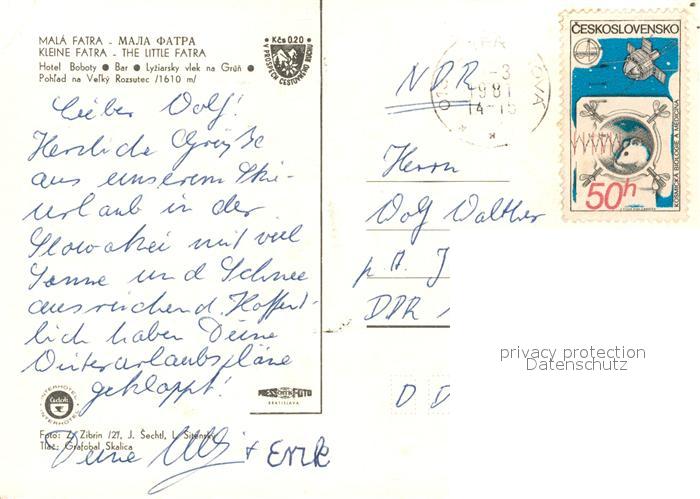 MALÁ FATRA - МАЛА ФАТРА
KLEINE FATRA - THE LITTLE FATRA
Hotel Boboty ● Bar ● Lyžiarsky vlek na Grúň ●
Pohľad na Veľký Rozsutec /1610 m/
Kčs 0.20
V PROSPECH CESTOVNÉHO RUCHU
Lieber Wolf!
Herzliche Grüße
aus unserem Ski-
urlaub in der
Slowakei mit viel
Sonne und Schnee
ausreichend. Hoffent-
lich haben Deine
Winterurlaubspläne
geklappt!
Deine Ulli + Erik
INTERHOTEL
čedok
INTERHOTEL
PRESSFOTO
BRATISLAVA
Foto: Z. Zibrín /2/, J. Šechtl, L. Sitenský
Tlač: Grafobal Skalica
NDR
-3
1981
14-15
OVÁ
ČESKOSLOVENSKO
KOSMICKÁ BIOLOGIE A MEDICÍNA
50h
Herrn
Wolf Walther
p. A. J
DDR
D D
privacy protection
Datenschutz